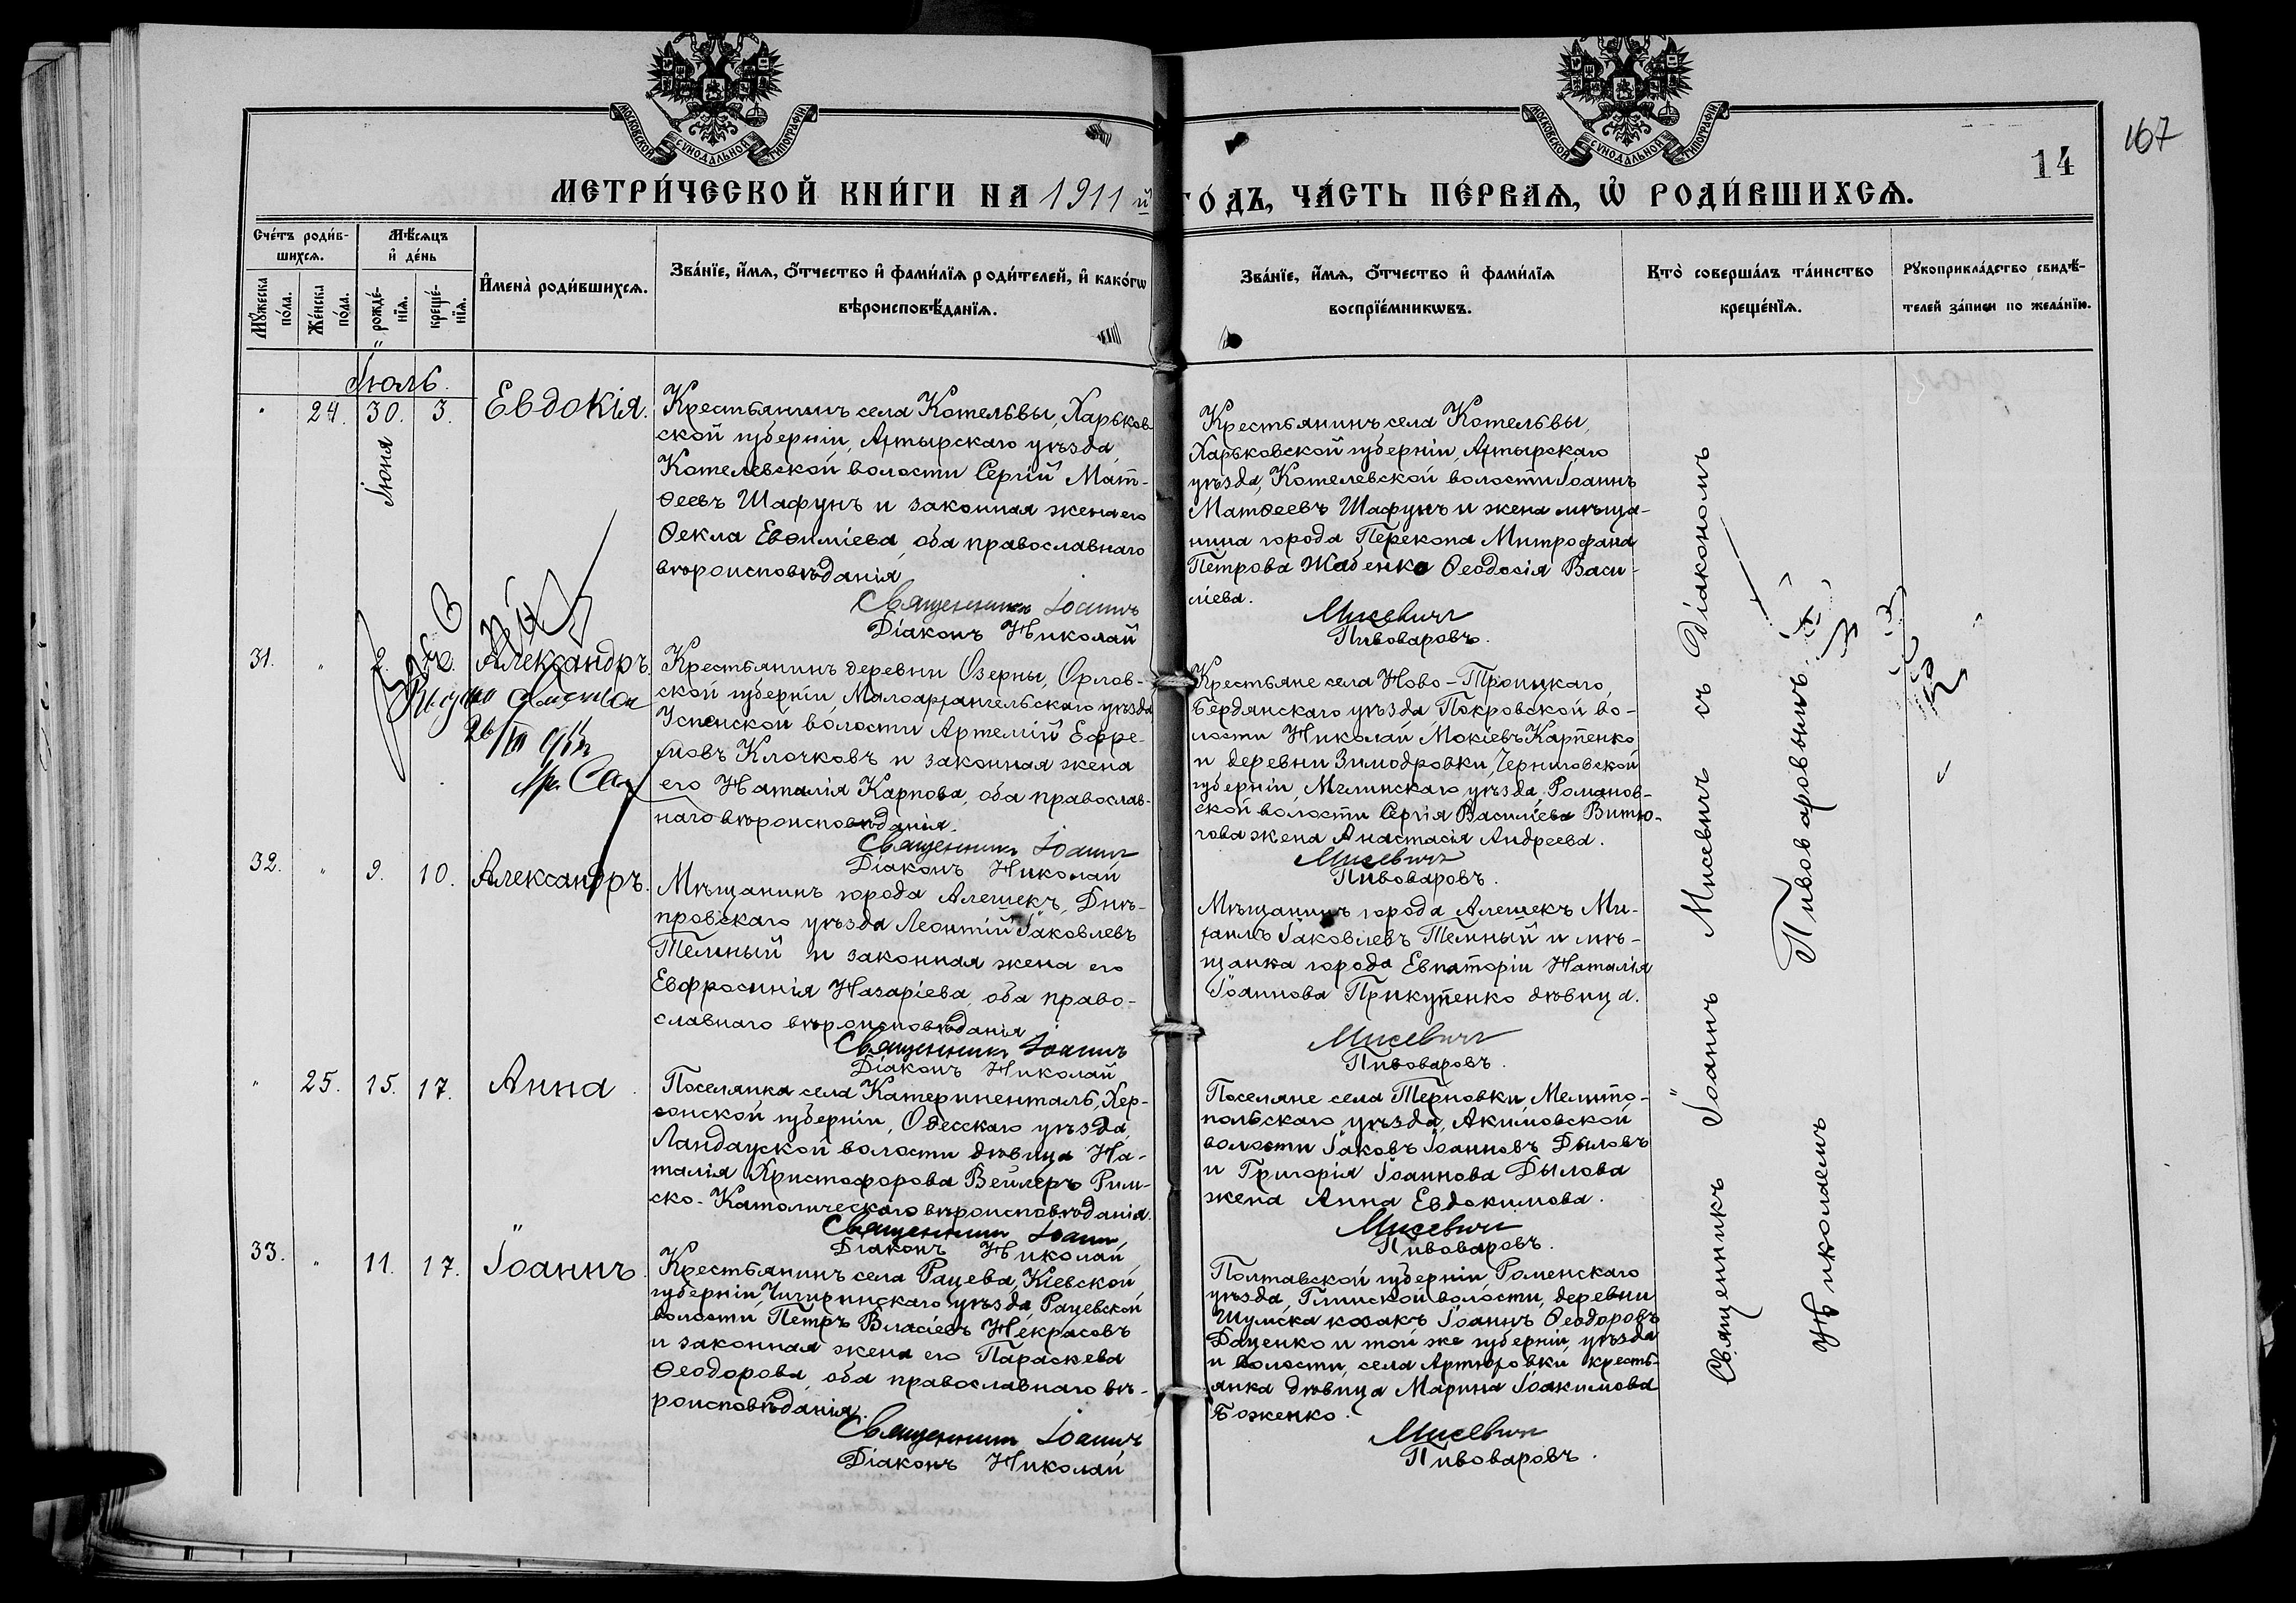 МОСКОВСКОЙ СѴНОДАЛЬНОЙ ТИПОГРАФІИ.
МОСКОВСКОЙ СѴНОДАЛЬНОЙ ТИПОГРАФІИ.
167
14
МЕТРИ́ЧЕСКОЙ КНИ́ГИ НА 1911 й ГО́ДЪ, ЧА́СТЬ ПЕ́РВАѦ, Ѡ҆ РОДИ́ВШИХСѦ.
Сче́тъ роди́в-
шихсѧ.
Мꙋ́жеска по́ла.
Же́нска по́ла.
Мѣ́сѧцъ
и҆ де́нь
рожде́-
нїѧ.
креще́-
нїѧ.
И҆мена̀ роди́вшихсѧ.
Зва́нїе, и҆́мѧ, ѻ҆́тчество и҆ фами́лїѧ роди́телей, и҆ како́гѡ
вѣроисповѣ́данїѧ.
Зва́нїе, и҆́мѧ, ѻ҆́тчество и҆ фами́лїѧ
воспрїе́мникѡвъ.
Кто̀ соверша́лъ та́инство
креще́нїѧ.
Рꙋкоприкла́дство свидѣ́-
телей за́писи по жела́нїю.
Іюль.
" 24. 30. 3. Евдокія.
Іюня
Крестьянинъ села Котельвы, Харьков-
ской губерніи, Ахтырскаго уѣзда,
Котелевской волости Сергій Мат-
ѳеевъ Шафунъ и законная жена его
Ѳекла Евѳиміева, оба православнаго
вѣроисповѣданія
Священникъ Іоаннъ
Діаконъ Николай
Крестьянинъ села Котельвы,
Харьковской губерніи, Ахтырскаго
уѣзда, Котелевской волости Іоаннъ
Матѳеевъ Шафунъ и жена мѣща-
нина города Перекопа Митрофана
Петрова Жабенко Ѳеодосія Васи-
ліева.
Мисевичъ
Пивоваровъ.
31. " Александръ.
Крестьянинъ деревни Озерны, Орлов-
ской губерніи, Малоархангельскаго уѣзда
Успенской волости Артемій Ефре-
мовъ Клочковъ и законная жена
его Наталія Карпова, оба православ-
наго вѣроисповѣданія.
Священникъ Іоаннъ
Діаконъ Николай
Крестьяне села Ново-Троицкаго,
Бердянскаго уѣзда, Покровской во-
лости Николай Мокіевъ Карпенко
и деревни Зимодровки, Черниговской
губерніи, Мглинскаго уѣзда, Романов-
ской волости Сергія Василіева Витю-
гова жена Анастасія Андреева.
Мисевичъ
Пивоваровъ.
32. " 9. 10. Александръ.
Мѣщанинъ города Алешекъ, Днѣ-
провскаго уѣзда Леонтій Іаковлевъ
Темный и законная жена его
Евфросинія Назаріева, оба право-
славнаго вѣроисповѣданія
Священникъ Іоаннъ
Діаконъ Николай
Мѣщанинъ города Алешекъ Ми-
хаилъ Іаковлевъ Темный и мѣ-
щанка города Евпаторіи Наталія
Іоаннова Прикупенко дѣвица.
Мисевичъ
Пивоваровъ.
" 25. 15. 17. Анна
Поселянка села Катериненталь, Хер-
сонской губерніи, Одесскаго уѣзда,
Ландауской волости дѣвица На-
талія Христофорова Вейлеръ Рим-
ско-Католическаго вѣроисповѣданія.
Священникъ Іоаннъ
Діаконъ Николай
Поселяне села Терновки, Мелито-
польскаго уѣзда, Акимовской
волости Іаковъ Іоанновъ Дыловъ
и Григорія Іоаннова Дылова
жена Анна Евдокимова.
Мисевичъ
Пивоваровъ.
33. " 11. 17. Іоаннъ
Крестьянинъ села Рацева, Кіевской
губерніи, Чигиринскаго уѣзда, Рацевской
волости Петръ Власіевъ Некрасовъ
и законная жена его Параскева
Ѳеодорова, оба православнаго вѣ-
роисповѣданія.
Священникъ Іоаннъ
Діаконъ Николай
Полтавской губерніи, Роменскаго
уѣзда, Глинской волости, деревни
Шумска козакъ Іоаннъ Ѳеодоровъ
Даценко и той же губерніи, уѣзда
и волости, села Артюховки кресть-
янка дѣвица Марина Іоакимова
Боженко.
Мисевичъ
Пивоваровъ.
Священникъ Іоаннъ Мисевичъ съ Діакономъ
Николаемъ Пивоваровымъ